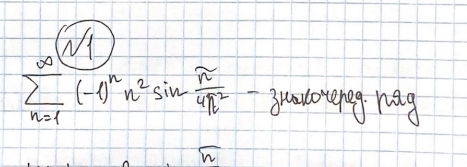 №1
∞
∑ (-1)ⁿ n² sin π/4n² - знакочеред. ряд
n=1
π